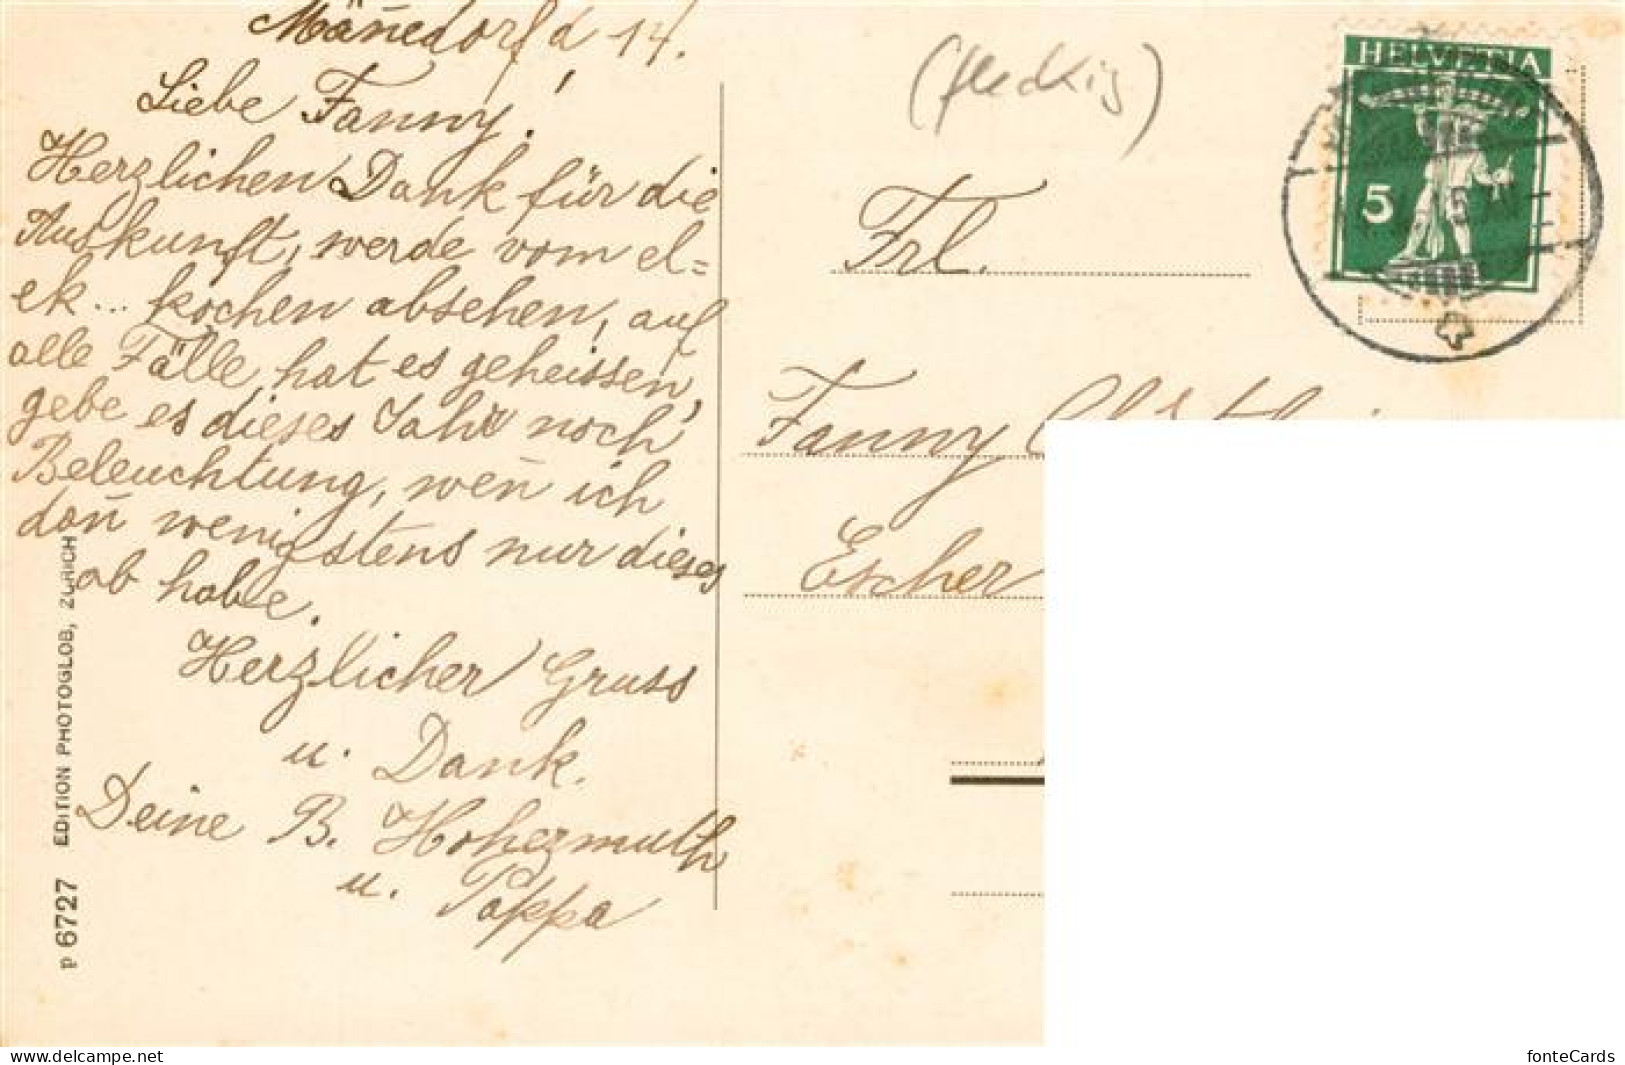 Mäñedorf d 14.
Liebe Fanny!
Herzlichen Dank für die
Auskunft, werde vom el=
ek... kochen absehen, auf
alle Fälle hat es geheissen,
gebe es dieses Jahr noch
Beleuchtung, wen̄ ich
dan̄ wenigstens nur dieses
ab habe.
Herzlicher Gruss
u. Dank.
Deine B. Hohermuth
u. Pappa
p 6727 EDITION PHOTOGLOB, ZÜRICH
(fleckig)
HELVETIA
5
Frl.
Fanny
Escher
www.delcampe.net
fonteCards